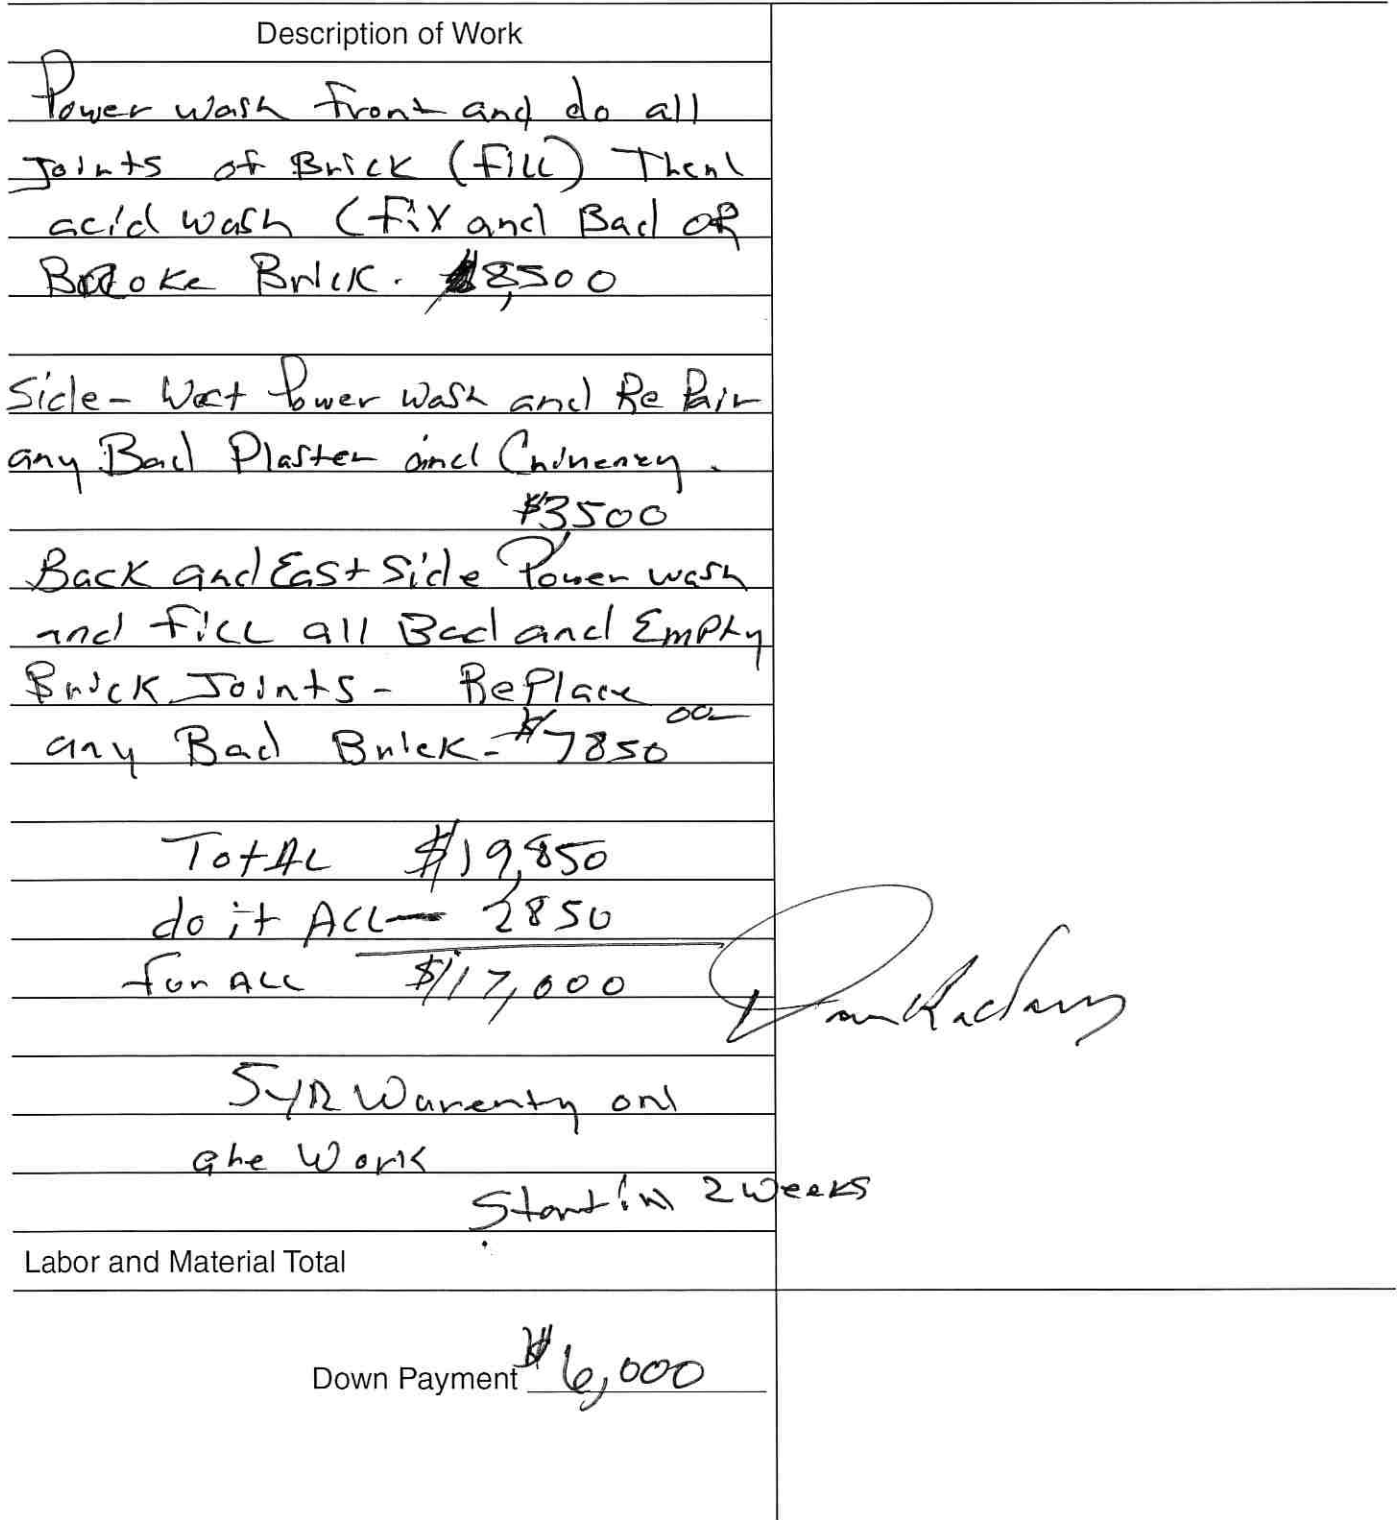 Description of Work
Power wash front and do all
Joints of Brick (Fill) Then
acid wash (Fix and Bad or
Broke Brick. $8,500
Side - West Power wash and Re Pair
any Bad Plaster and Chimeney.
$3,500
Back and East Side Power wash
and Fill all Bad and Empty
Brick Joints - RePlace
any Bad Brick - $7850 00
TotAL $19,850
do it ALL — 2850
for ALL $17,000
5 yR Warenty on
the Work
Start in 2 weeks
Labor and Material Total
Down Payment $6,000